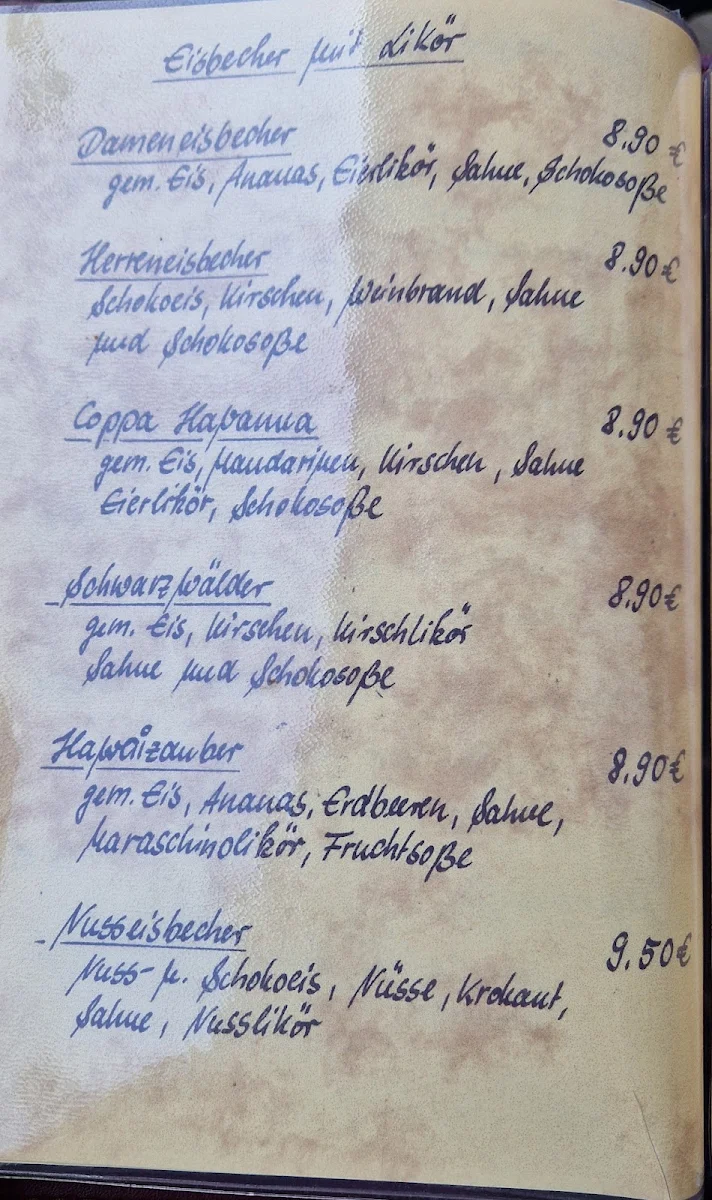 Eisbecher mit Likör
Dameneisbecher 8.90 €
gem. Eis, Ananas, Eierlikör, Sahne, Schokosoße
Herreneisbecher 8.90 €
Schokoeis, Kirschen, Weinbrand, Sahne
und Schokosoße
Coppa Havanna 8.90 €
gem. Eis, Mandarinen, Kirschen, Sahne
Eierlikör, Schokosoße
Schwarzwälder 8.90 €
gem. Eis, Kirschen, Kirschlikör
Sahne und Schokosoße
Hawaizauber 8.90 €
gem. Eis, Ananas, Erdbeeren, Sahne,
Maraschinolikör, Fruchtsoße
Nusseisbecher 9.50 €
Nuss- u. Schokoeis, Nüsse, Krokant,
Sahne, Nusslikör